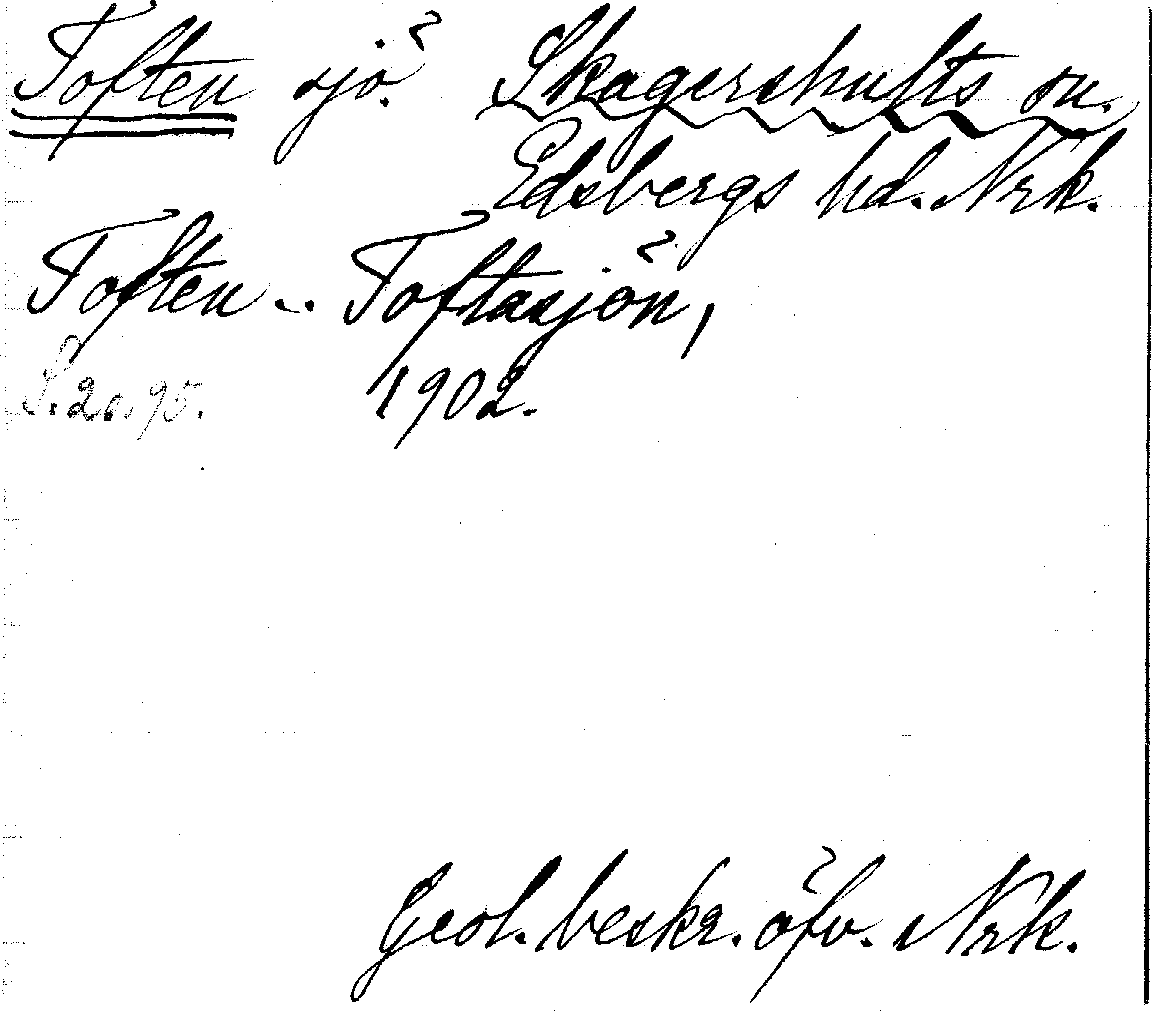 Toften sjö. Skagershults sn.
Edsbergs hd. Nrk.
Toften .. Toftasjön,
S. 20. 95. 1902.
Geol. beskr. öfv. Nrk.